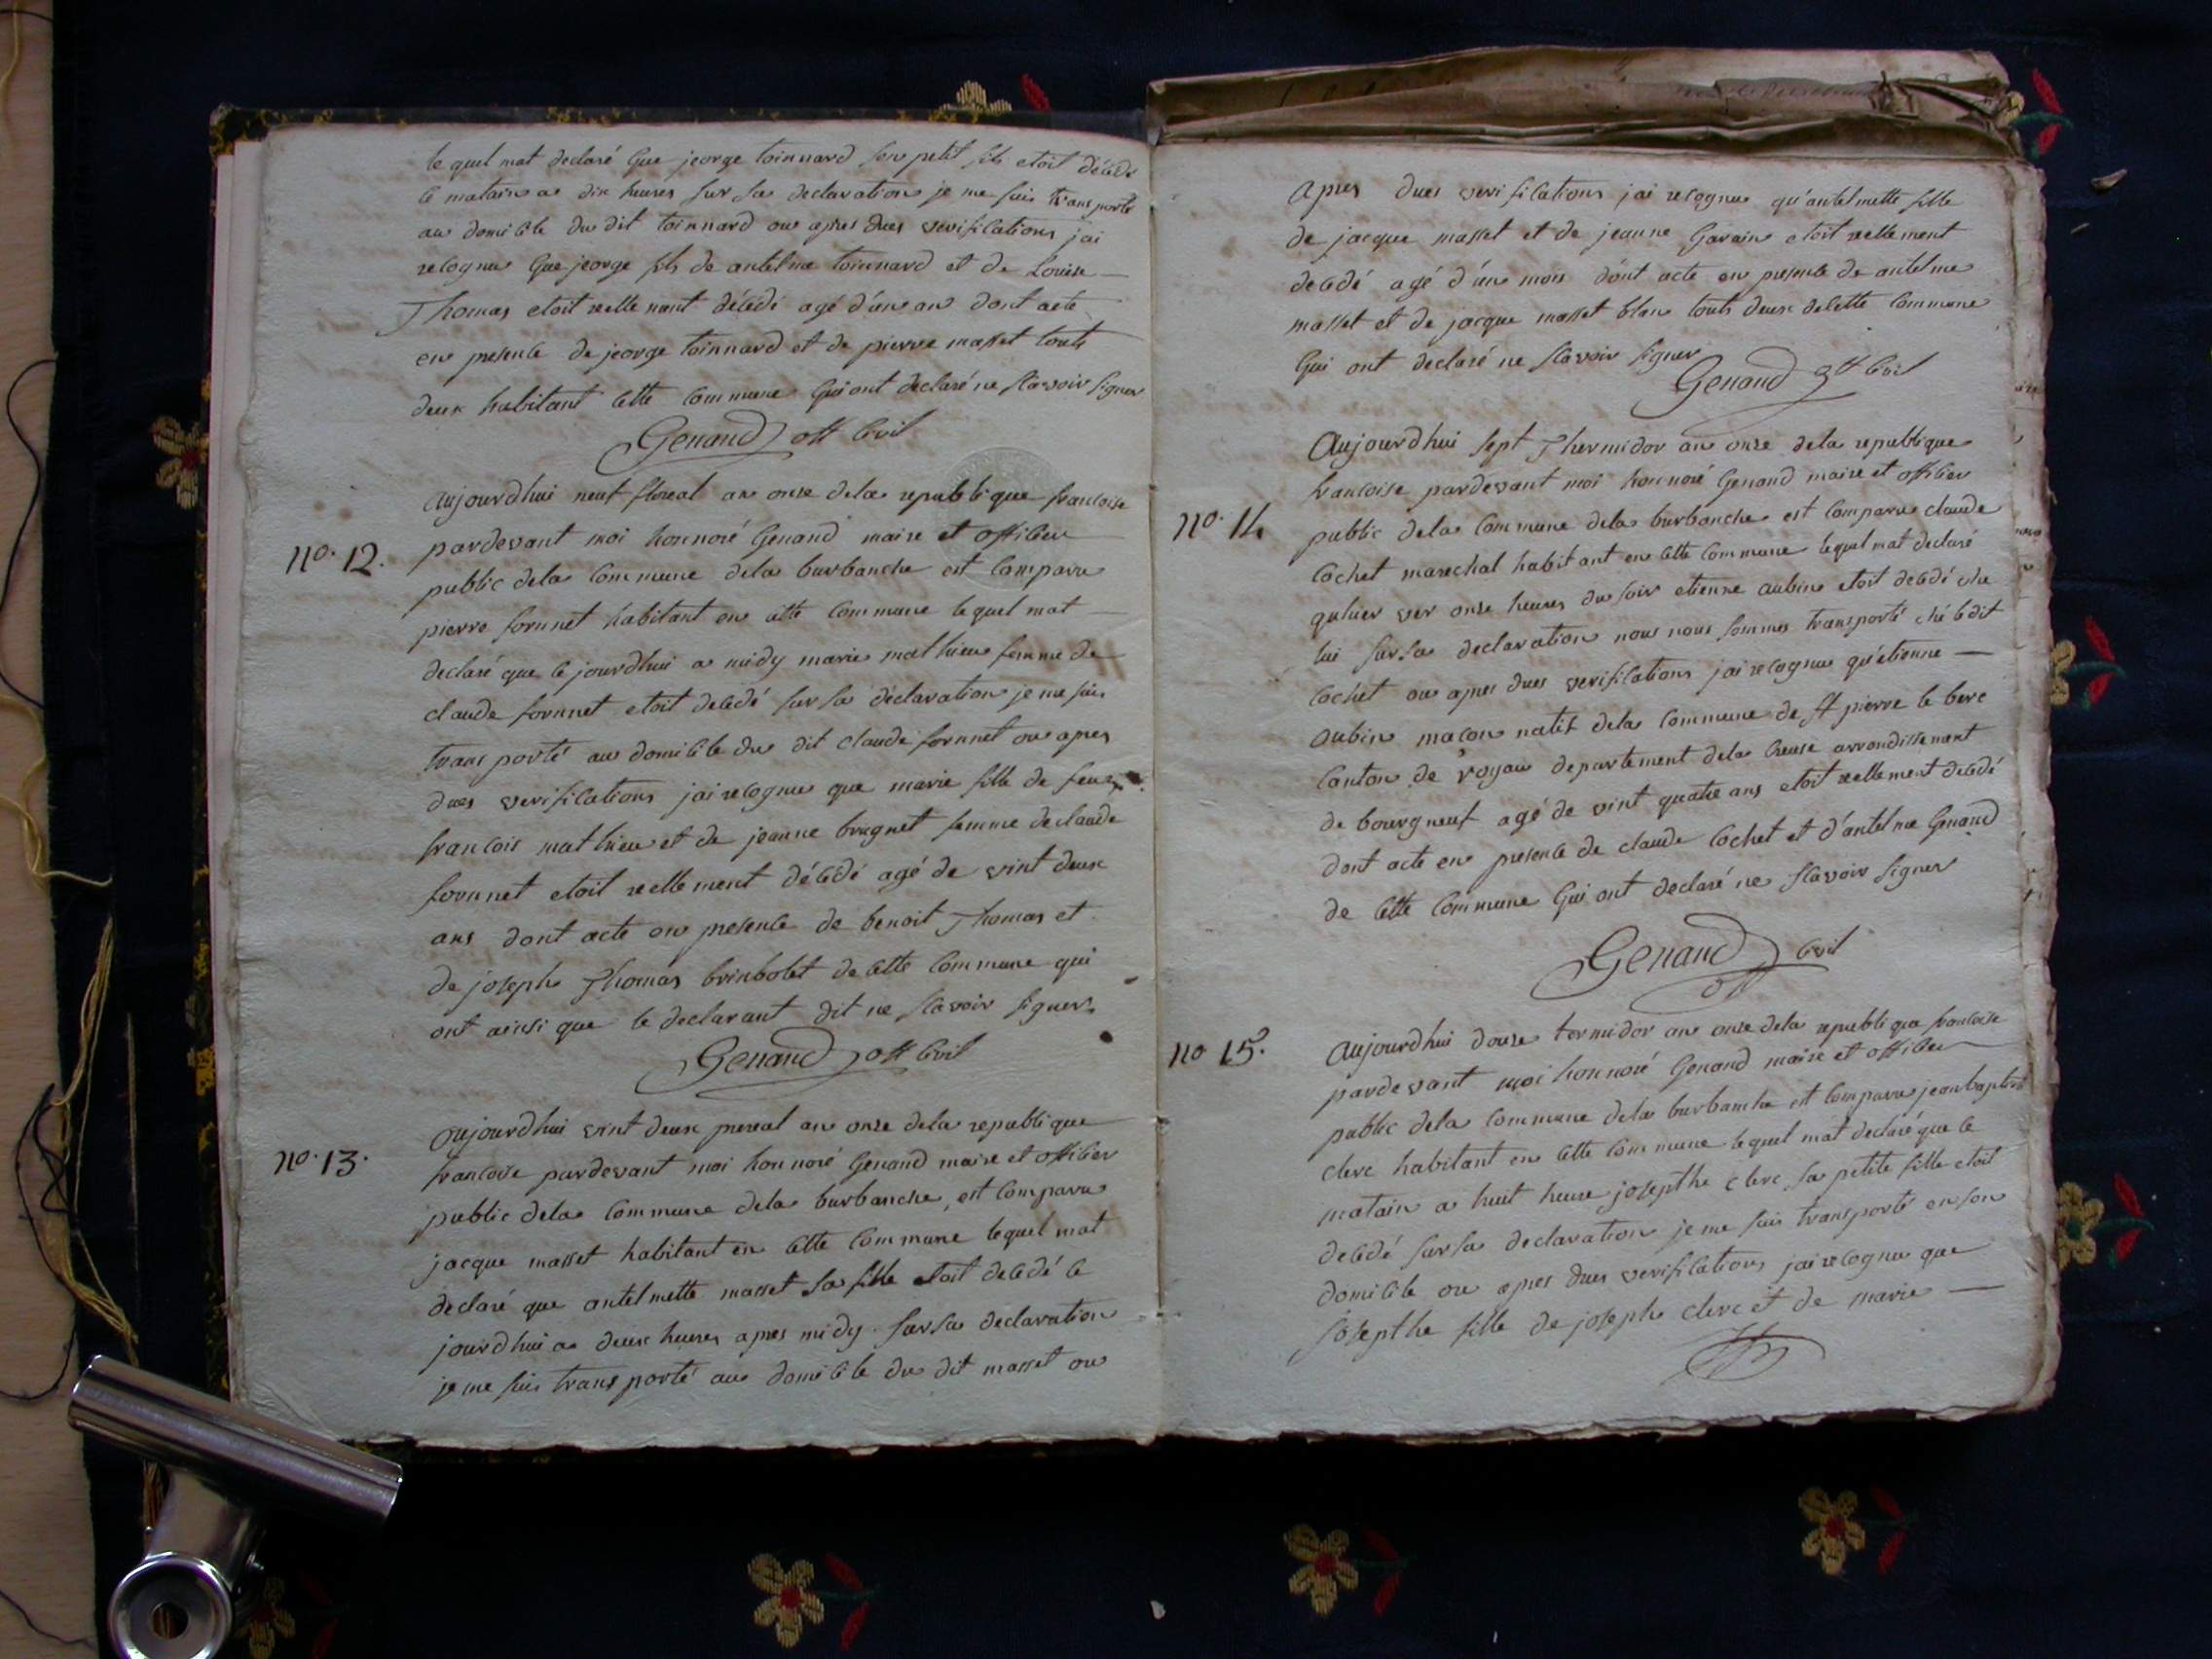 le quel mat declaré que jeorge toinnard son petit fils etoit décédé
le matain a dix heures sur sa declaration je me suis transporté
au domicile du dit toinnard ou apres dues verifications jai
recognu que jeorge fils de antelme toinnard et de Louise
Thomas etoit reellemant décédé agé d'un an dont acte
en presence de jeorge toinnard et de pierre masset touts
deux habitant cette commune qui ont declaré ne scavoir signer
Genand off civil
no. 12.
aujourdhui neuf floreal an onze dela republique francoise
pardevant moi honnoré Genand maire et officier
public dela commune dela burbanche est comparu
pierre fornnet habitant en cette commune lequel mat
declaré que cejourdhui a midy marie mathieu femme de
claude fornnet etoit decedé sur sa declaration je me suis
transporté au domicile du dit claude fornnet ou apres
dues verifications jai recognu que marie fille de feu
francois mathieu et de jeanne brugnet femme de claude
fornnet etoit reellement décédé agé de vint deux
ans dont acte en presence de benoit Thomas et
de joseph Thomas brinbolet de cette commune qui
ont ainsi que le declarant dit ne scavoir signer
Genand off civil
no. 13.
aujourdhui vint deux prereal an onze dela republique
francoise pardevant moi honnoré Genand maire et officier
public dela commune dela burbanche, est comparu
jacque masset habitant en cette commune lequel mat
declaré que antelmette masset sa fille etoit decedé ce
jourdhui a deux heures apres midy. sur sa declaration
je me suis transporté au domicile du dit masset ou
apres dues verifications jai recognu qu'antelmette fille
de jacque masset et de jeanne Garain etoit reellement
decedé agé d'un mois dont acte en presence de antelme
masset et de jacque masset blan touts deux de cette commune
qui ont declaré ne scavoir signer
Genand off civil
no. 14
Aujourdhui sept Thermidor an onze dela republique
francoise pardevant moi honnoré Genand maire et officier
public dela commune dela burbanche est comparu claude
cochet marechal habitant en cette commune lequel mat declaré
quhier ver onze heures du soir etienne aubin etoit decedé ché
lui sur sa declaration nous nous sommes transporté ché ledit
cochet ou apres dues verifications jai recognu qu'etienne
aubin macon natif dela commune de st pierre le berc
canton de royau departement dela Creuse arrondissemant
de bourgneuf agé de vint quatre ans etoit reellement decedé
dont acte en presence de claude cochet et d'antelme Genand
de cette commune qui ont declaré ne scavoir signer
Genand off civil
no 15.
Aujourdhui douze termidor an onze dela republique francoise
pardevant moi honnoré Genand maire et officier
public dela commune dela burbanche est comparu jeanbaptiste
clerc habitant en cette commune lequel mat declaré que ce
matain a huit heure josepthe clerc sa petite fille etoit
decedé sur sa declaration je me suis transporté en son
domicile ou apres dues verifications jai recognu que
josepthe fille de joseph clerc et de marie